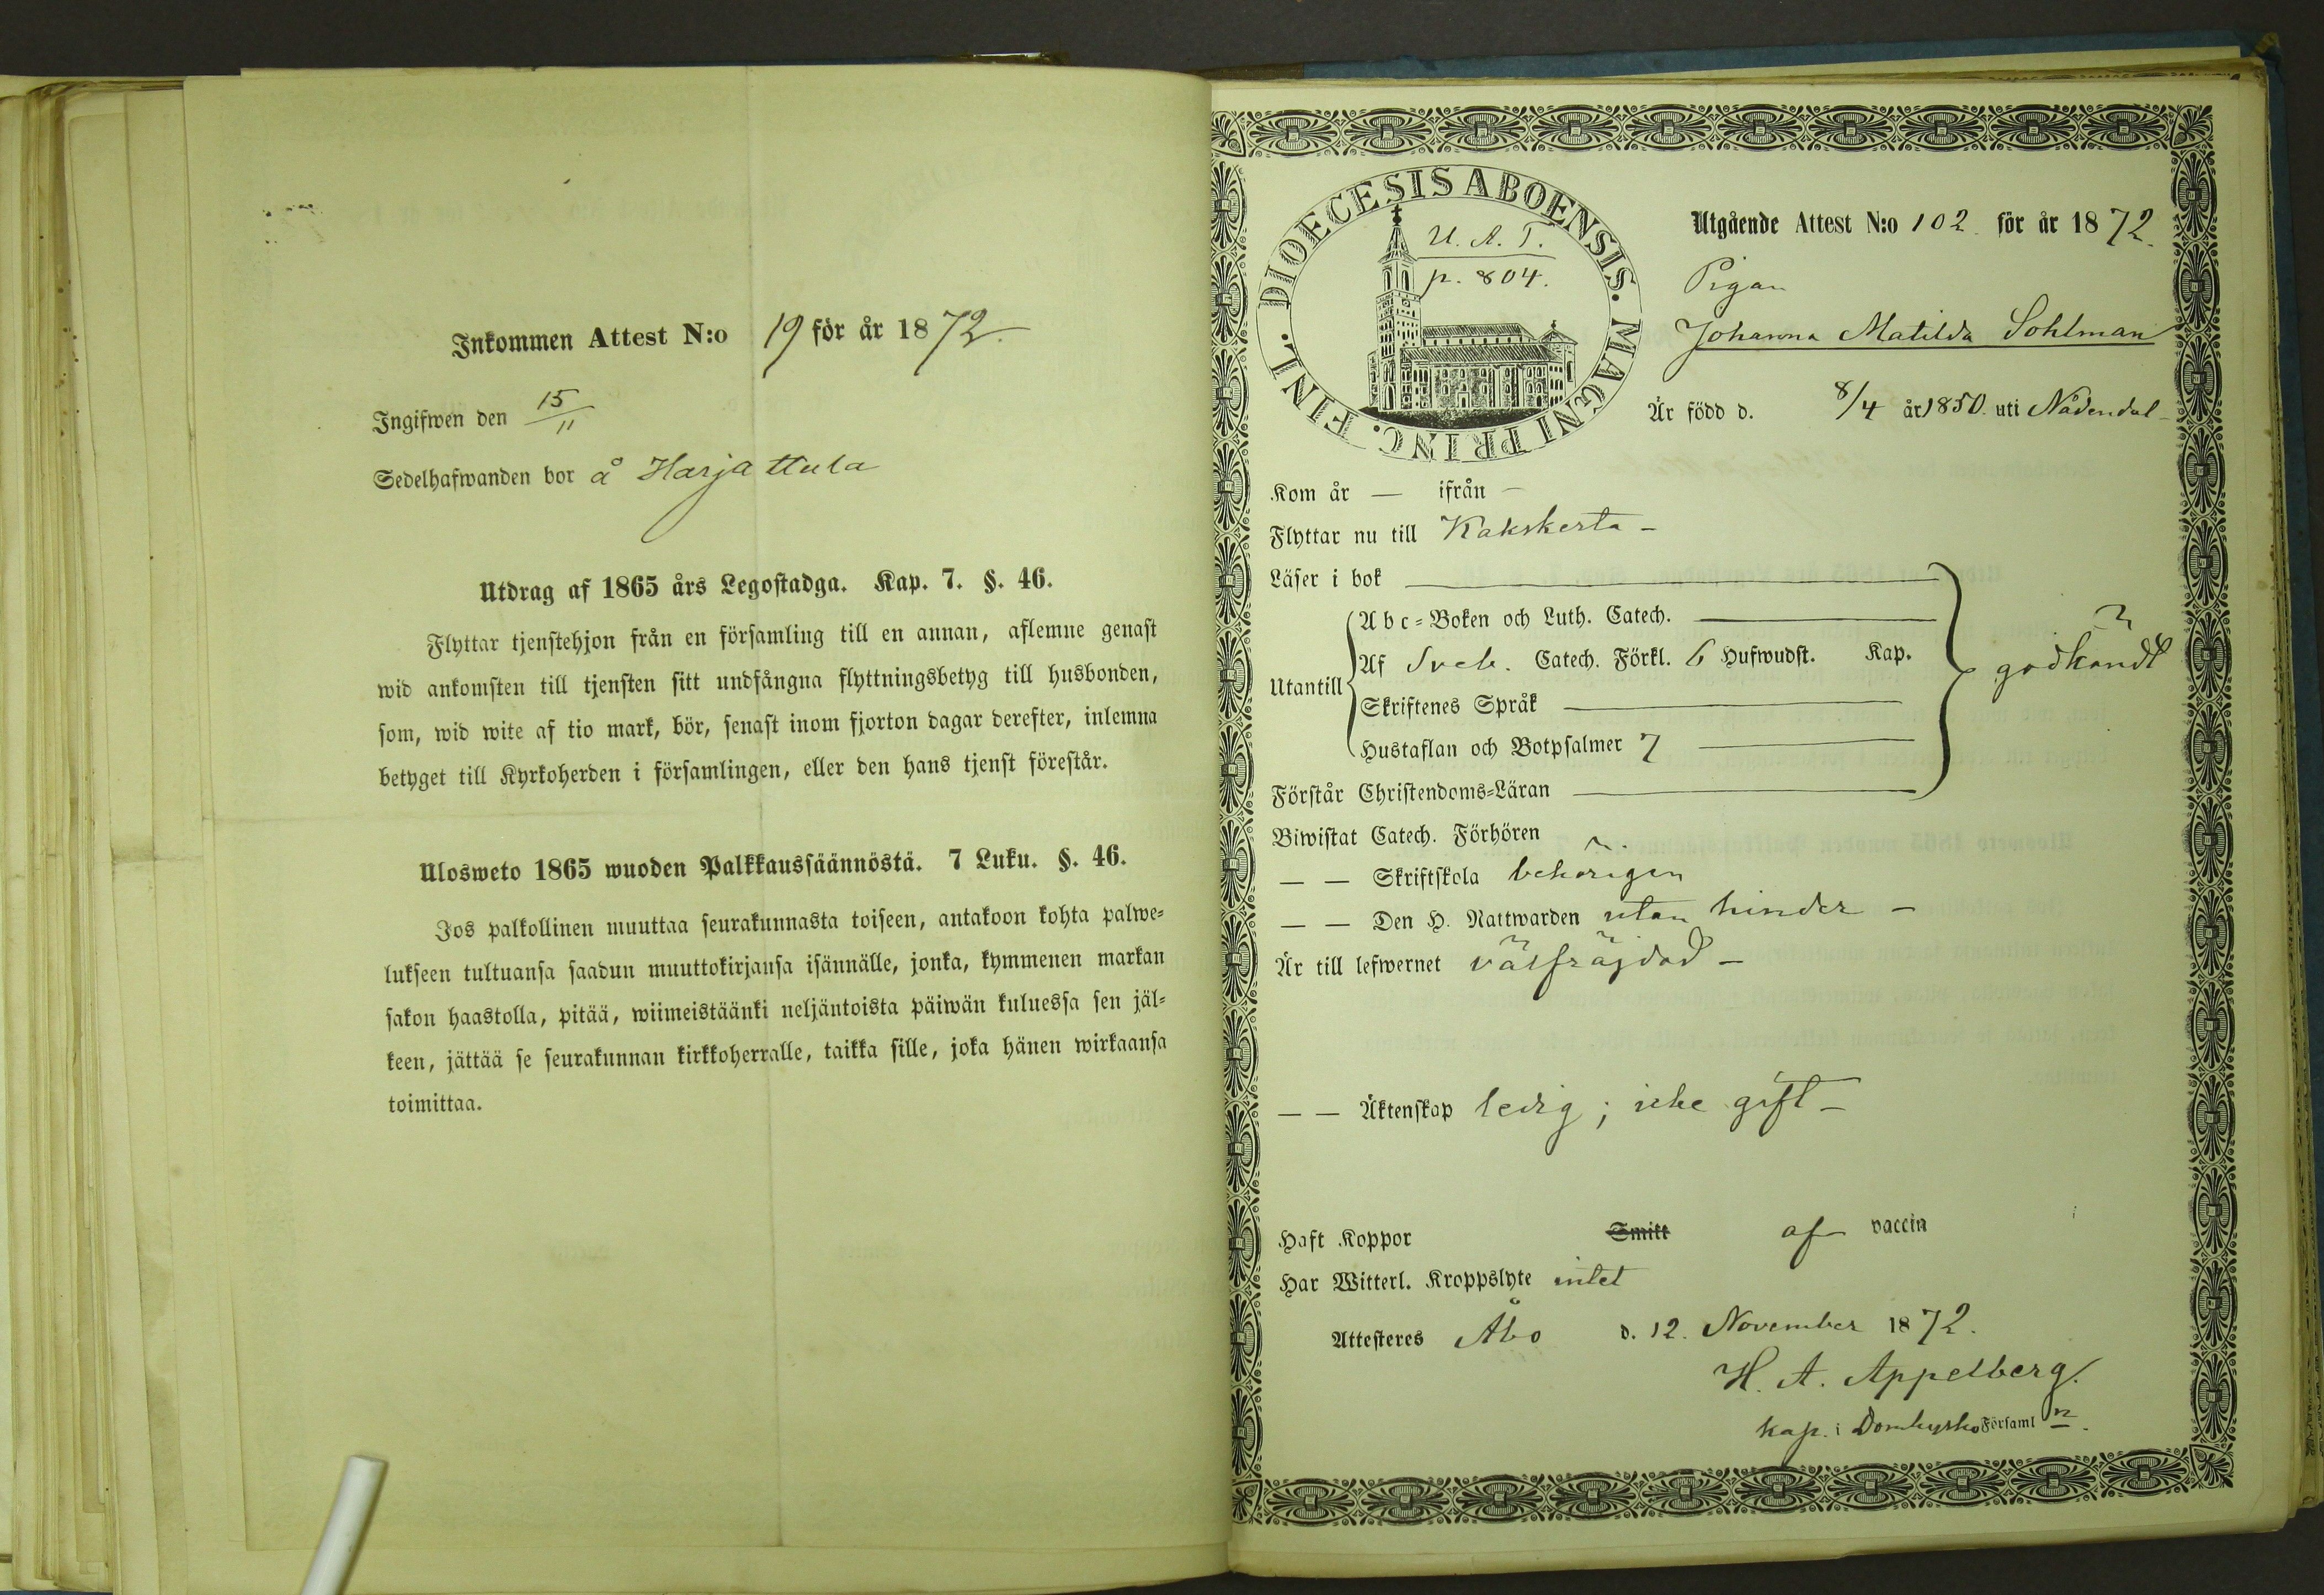 Inkommen Attest N:o 19 för år 1872.
Ingifwen den 15/11
Sedelhafwanden bor å Harjattula
Utdrag af 1865 års Legostadga. Kap. 7. §. 46.
Flyttar tjenstehjon från en församling till en annan, aflemne genast
wid ankomsten till tjensten sitt undfångna flyttningsbetyg till husbonden,
som, wid wite af tio mark, bör, senast inom fjorton dagar derefter, inlemna
betyget till Kyrkoherden i församlingen, eller den hans tjenst förestår.
Ulosweto 1865 wuoden Palkkaussäännöstä. 7 Luku. §. 46.
Jos palkollinen muuttaa seurakunnasta toiseen, antakoon kohta palwe-
lukseen tultuansa saadun muuttokirjansa isännälle, jonka, kymmenen markan
sakon haastolla, pitää, wiimeistäänki neljäntoista päiwän kuluessa sen jäl-
keen, jättää se seurakunnan kirkkoherralle, taikka sille, joka hänen wirkaansa
toimittaa.
DIOECESIS ABOENSIS. MAGNI PRINC. FINL.
U. A. T.
p. 804.
Utgående Attest N:o 102. för år 1872.
Pigan
Johanna Matilda Sohlman
Är född d. 8/4 år 1850. uti Nådendal
Kom år — ifrån —
Flyttar nu till Kakskerta —
Läser i bok
Utantill
Abc-Boken och Luth. Catech.
Af Sveb. Catech. Förkl. 6 Hufwudst. Kap.
Skriftenes Språk
Hustaflan och Botpsalmer 7
godkändt
Förstår Christendoms-Läran
Biwistat Catech. Förhören
— — Skriftskola behörigen
— — Den H. Nattwarden utan hinder —
Är till lefwernet välfräjdad —
— — Äktenskap ledig; icke gift —
Haft Koppor Smitt af vaccin
Har Witterl. Kroppslyte intet
Attesteres Åbo d. 12. November 1872.
H. A. Appelberg.
kap. i Domkyrko Församl n.